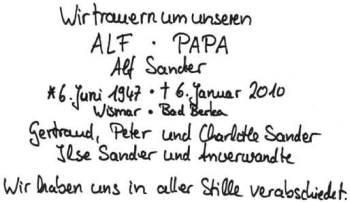 Wir trauern um unseren
ALF · PAPA
Alf Sander
* 6. Juni 1947 · † 6. Januar 2010
Wismar · Bad Berka
Gertraud, Peter und Charlotte Sander
Ilse Sander und Anverwandte
Wir haben uns in aller Stille verabschiedet.